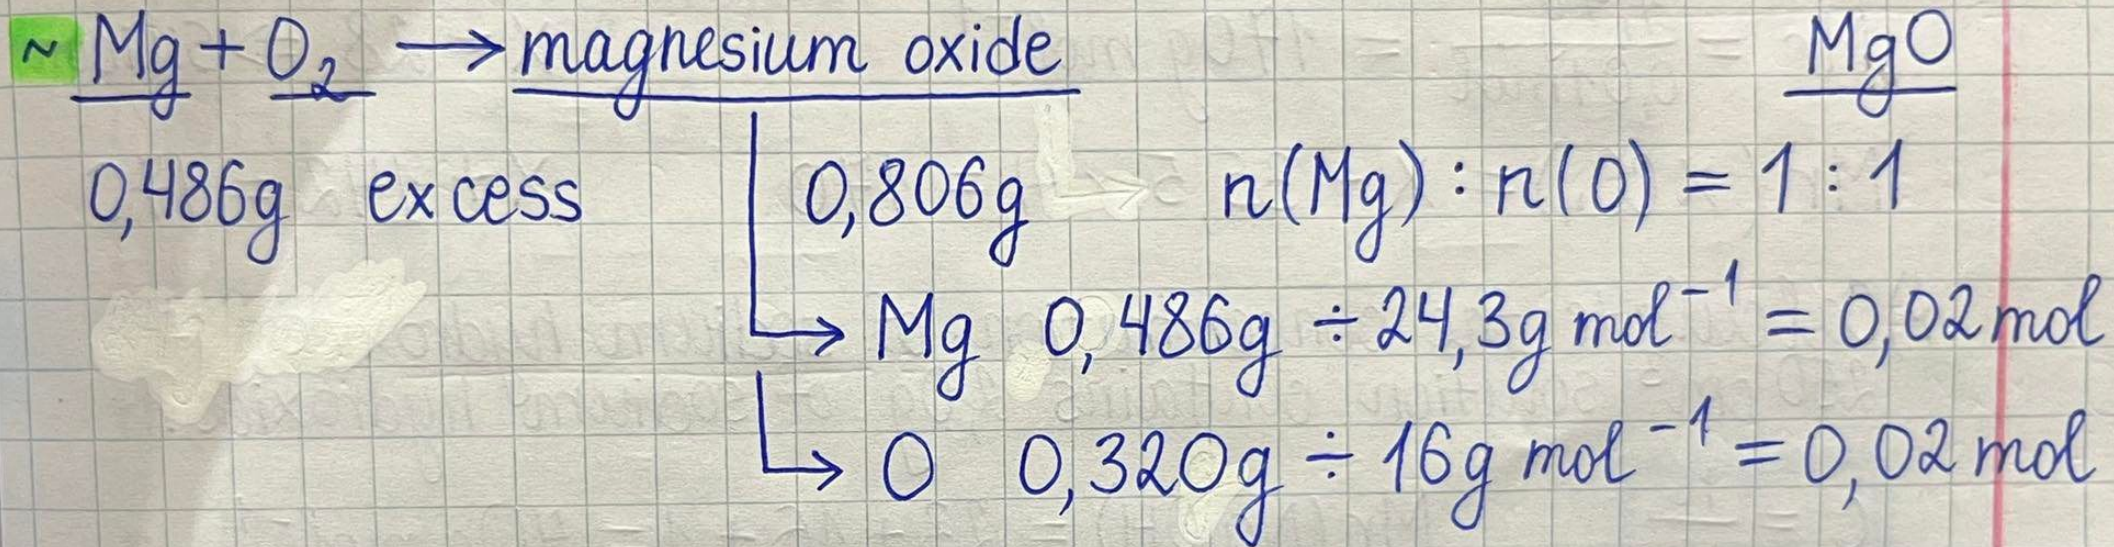 ~ Mg + O₂ → magnesium oxide MgO
0,486g excess 0,806g → n(Mg) : n(O) = 1 : 1
→ Mg 0,486g ÷ 24,3g mol⁻¹ = 0,02 mol
→ O 0,320g ÷ 16g mol⁻¹ = 0,02 mol